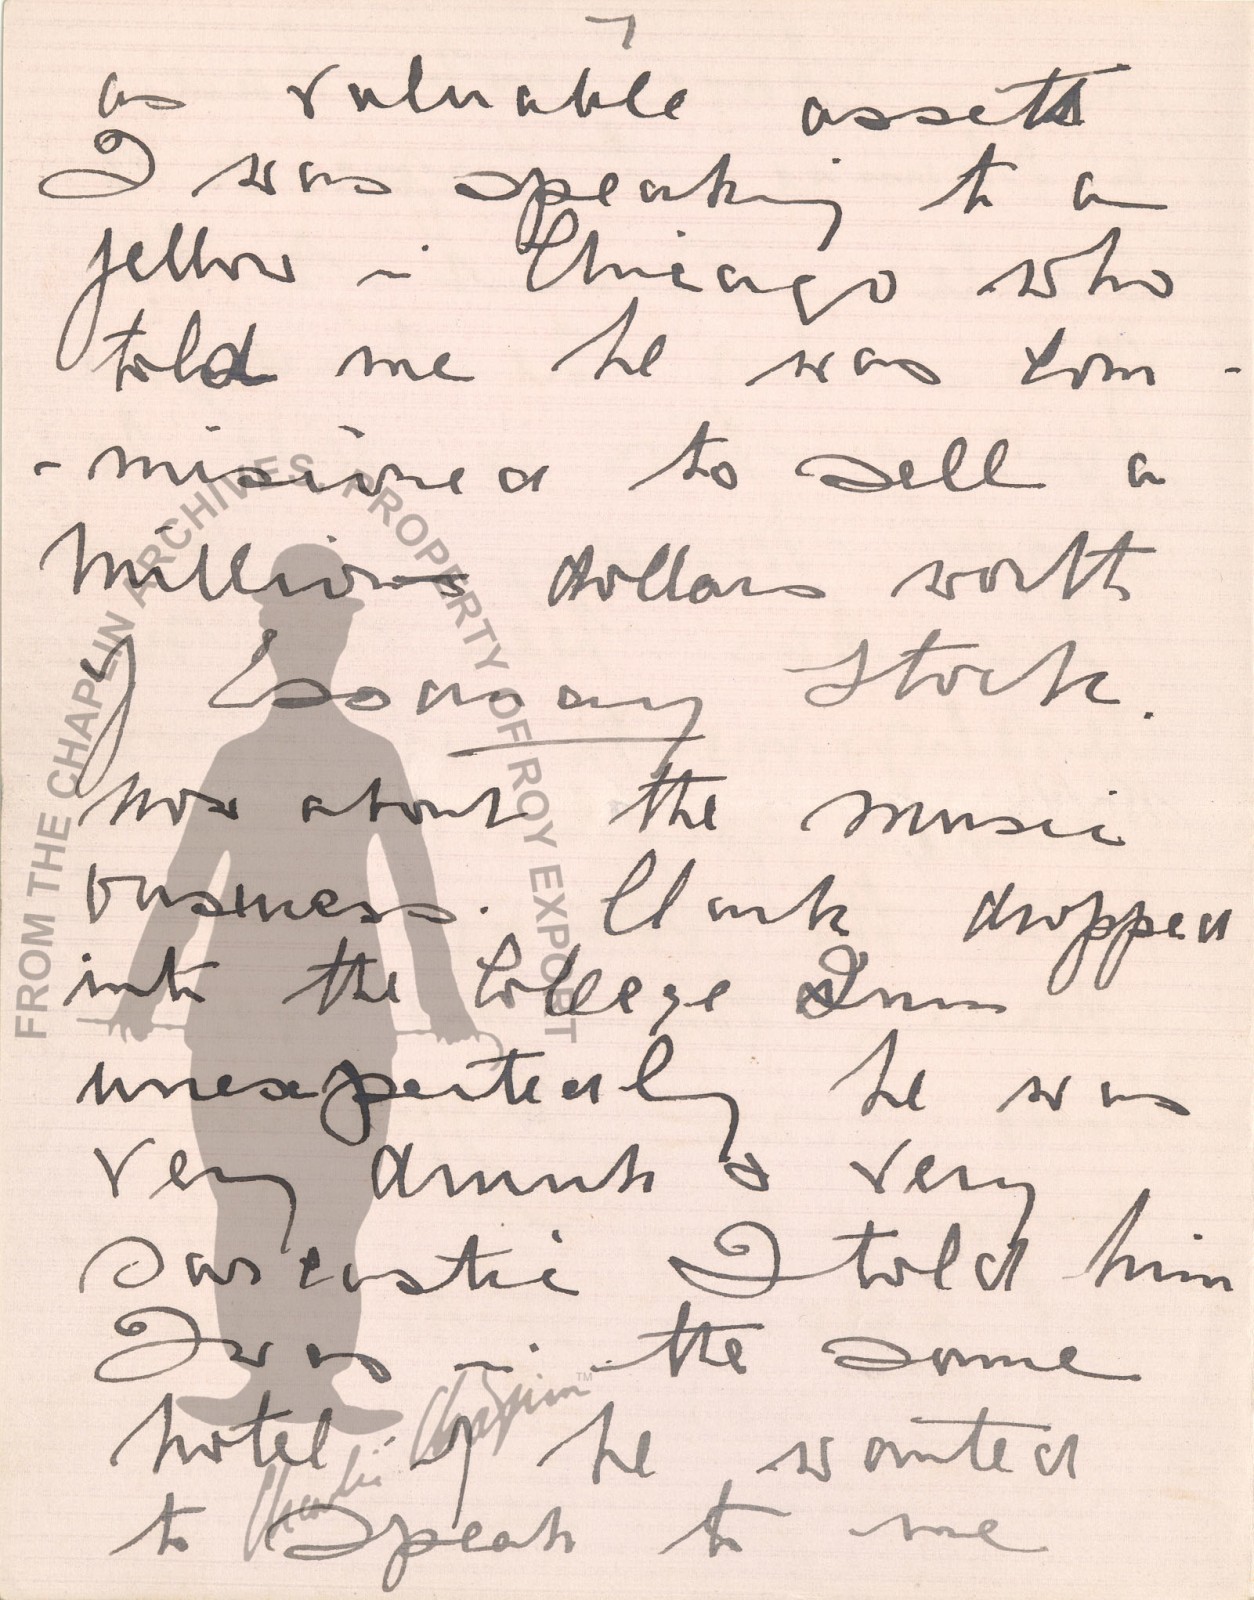 7
as valuable assets
I was speaking to a
fellow in Chicago who
told me he was com-
-misioned to sell a
Millions dollars worth
of Essanay stock.
now about the music
business. Clark dropped
into the College Inn
unexpectedly he was
very drunk & very
sarcastic I told him
I was in the same
hotel if he wanted
to speak to me
FROM THE CHAPLIN ARCHIVES. PROPERTY OF ROY EXPORT
Charlie Chaplin™